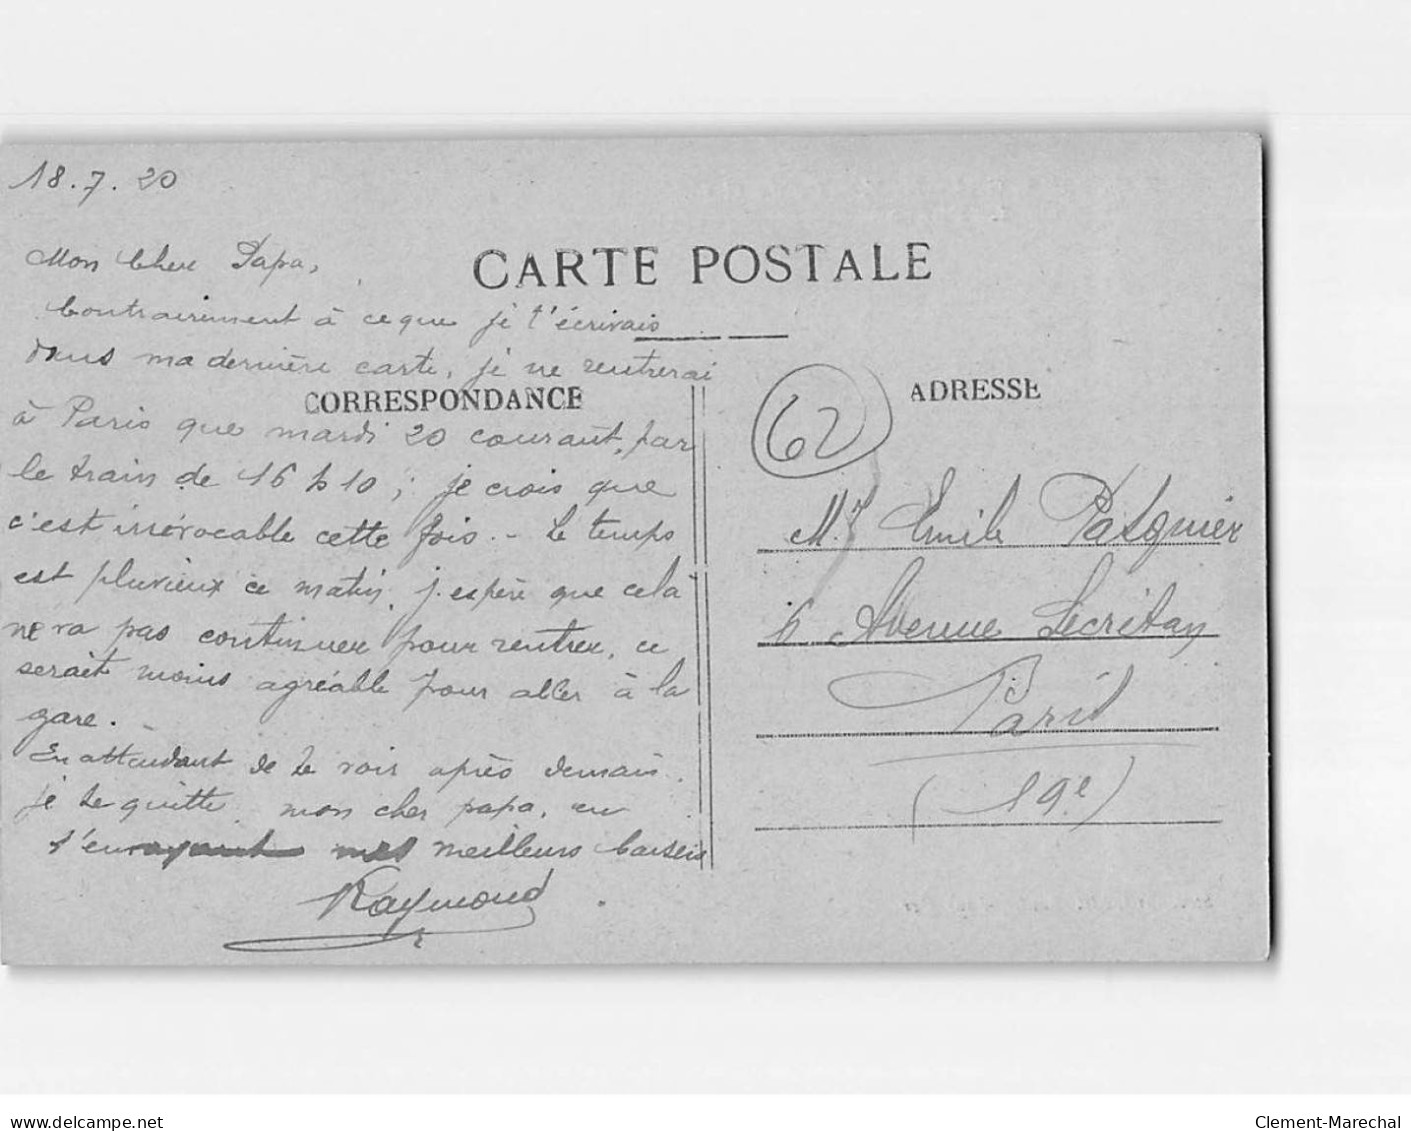 18.7.20
Mon Cher Papa,
Contrairement à ce que je t'écrivais
dans ma dernière carte, je ne rentrerai
à Paris que mardi 20 courant, par
le train de 16 h 10 ; je crois que
c'est irrévocable cette fois. - Le temps
est pluvieux ce matin, j'espère que cela
ne va pas continuer pour rentrer, ce
serait moins agréable pour aller à la
gare. -
En attendant de te voir après demain,
je te quitte, mon cher papa, en
t'envoyant mes meilleurs baisers
Raymond
CARTE POSTALE
CORRESPONDANCE
ADRESSE
62
Mr Emile Pasquier
6 Avenue Secrétan
Paris
(19e)
delcampe.net
Clement-Marechal